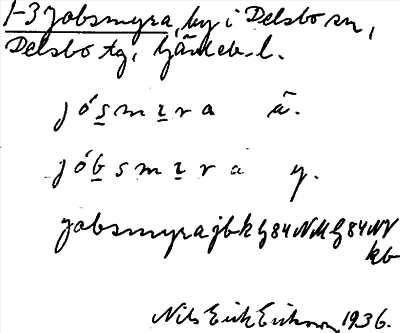 1-3 Jobsmyra, by i Delsbo sn,
Delsbo tg, Gävleb. l.
jó s̲ m ɪ̲ r a ä.
jó b̲ s m ɪ̲ r a y.
Jobsmyra jbk G84NV
kb
Nils Erik Eriksson 1936.